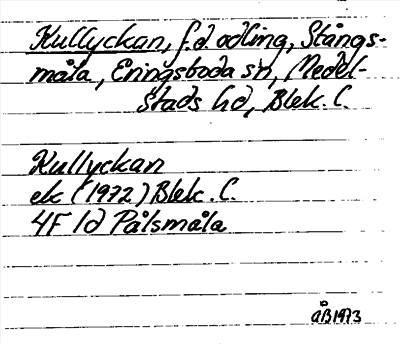 Kullyckan, f.d. odling, Stångs-
måla, Eringsboda sn, Medel-
stads hd, Blek. l.
Kullyckan
ek (1972) Blek. l.
4F 1d Pålsmåla
ÅB1973